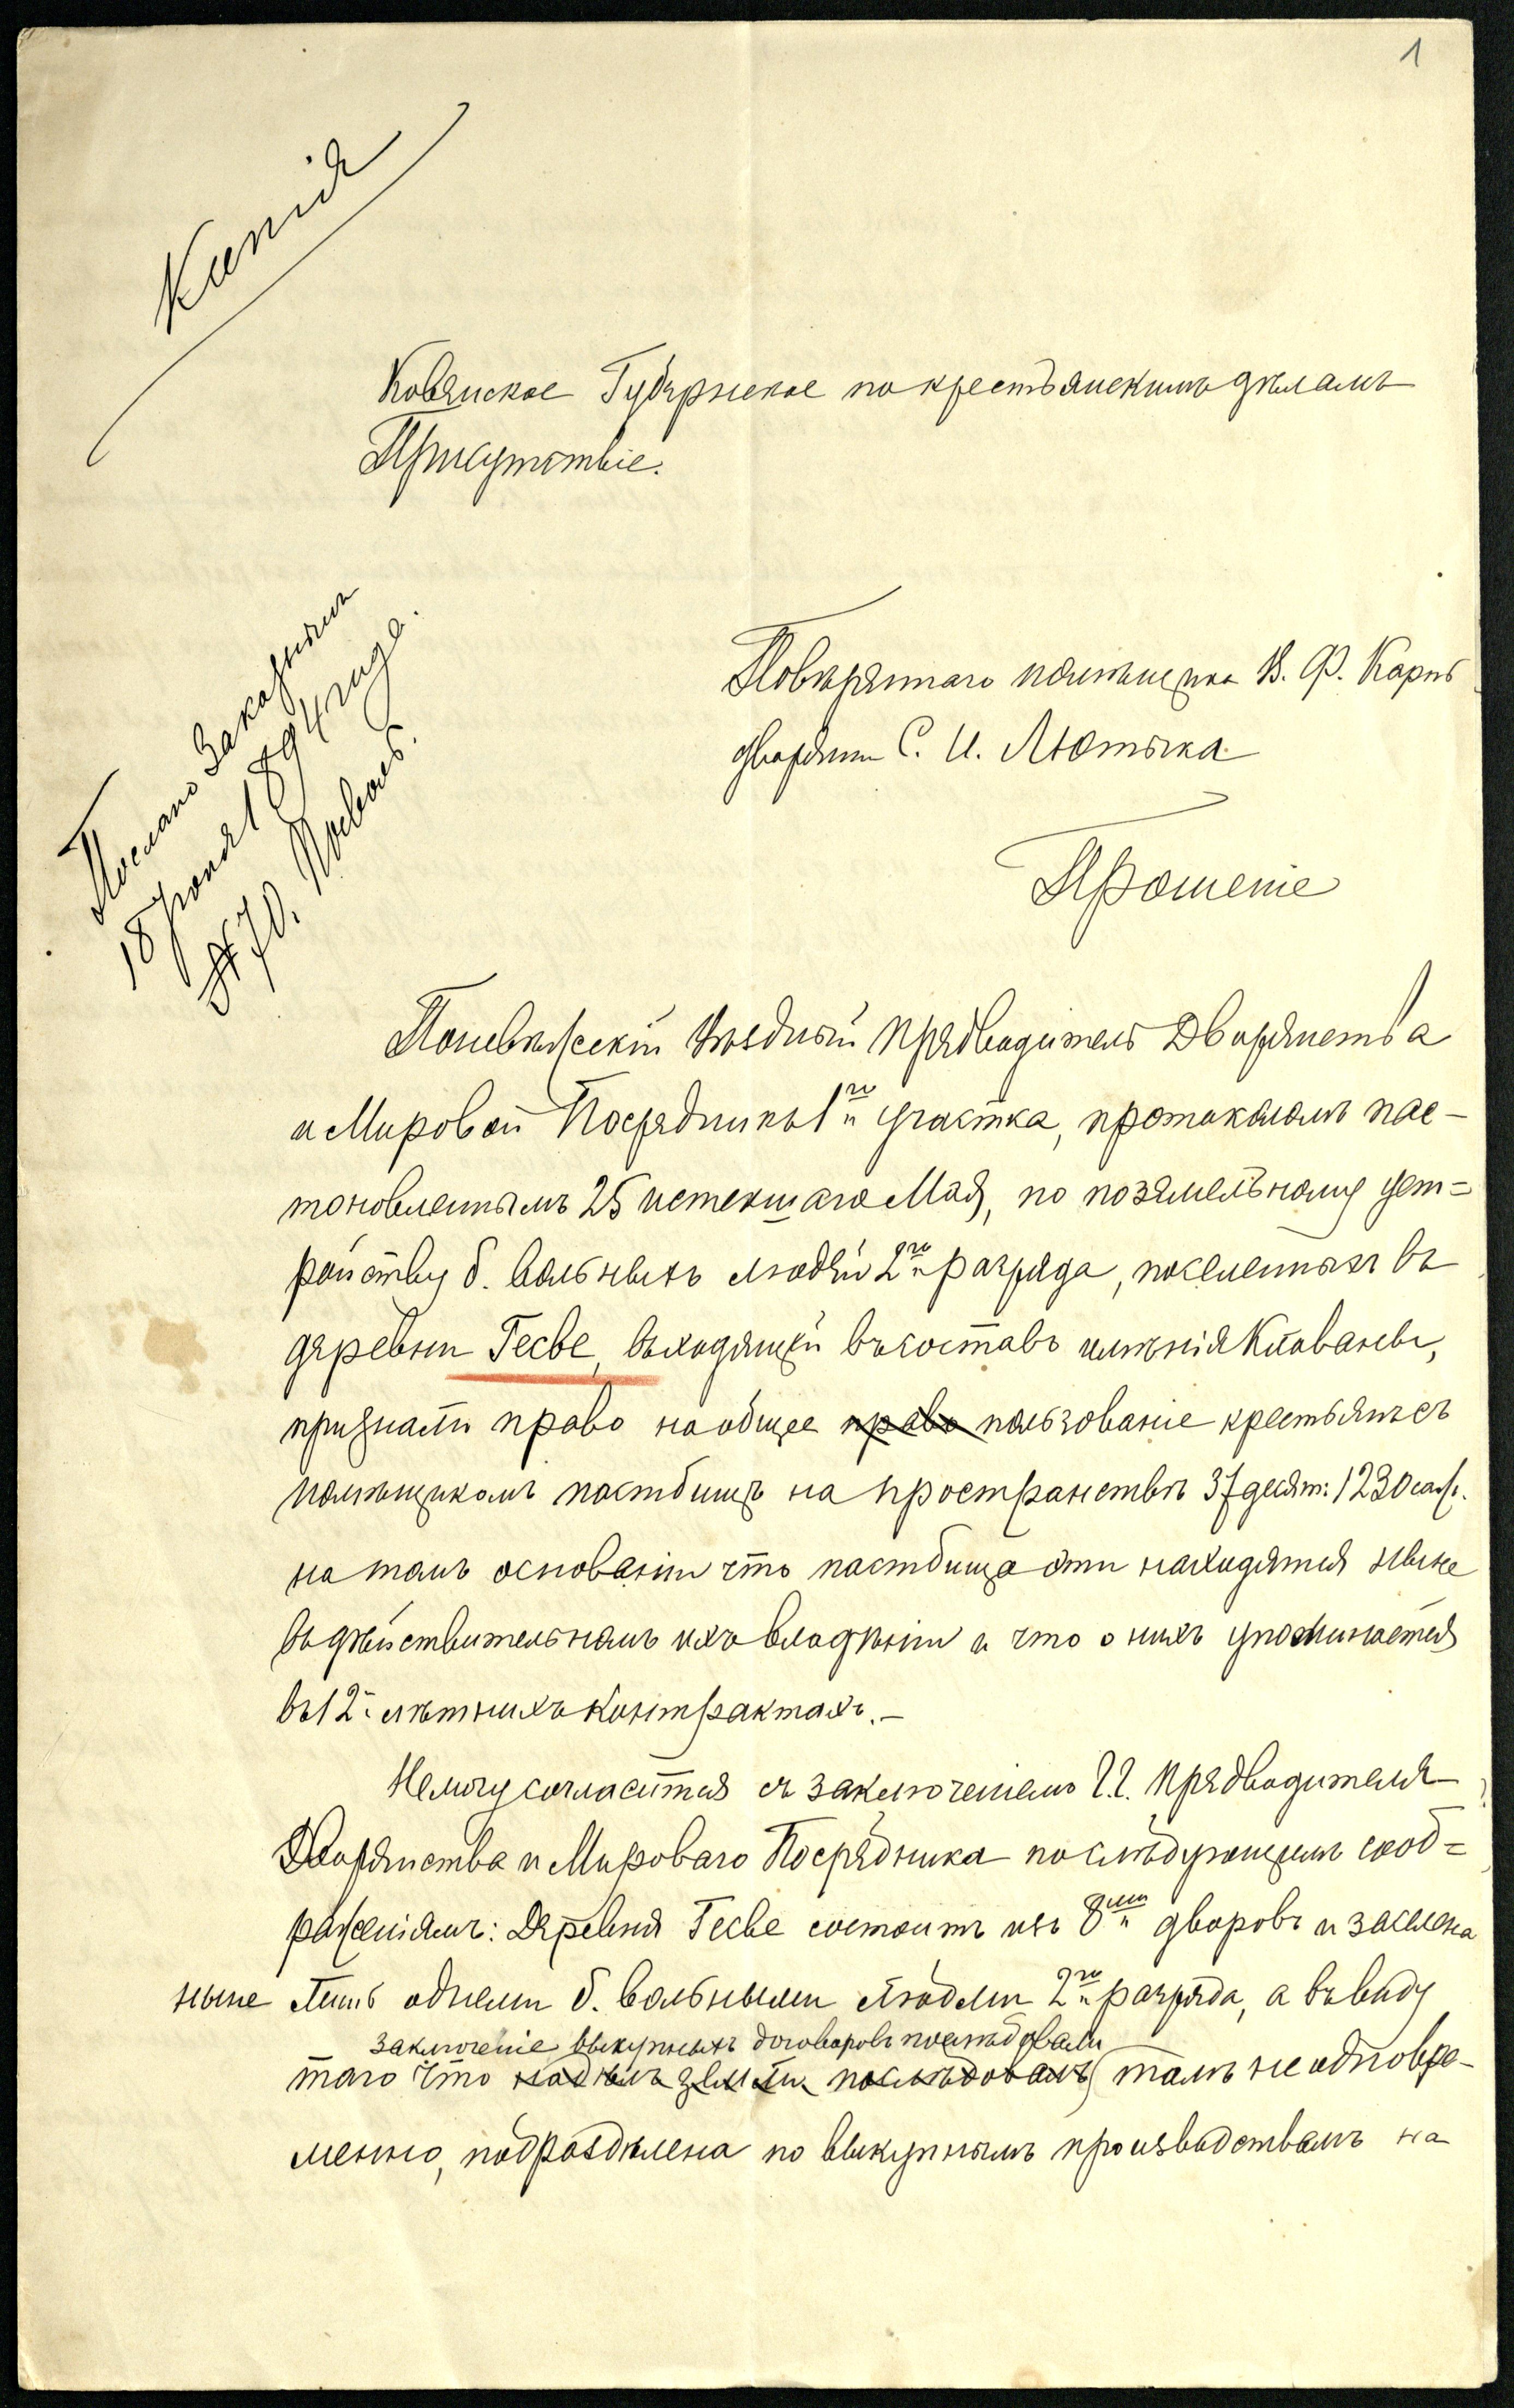 1
Копія
Ковенское Губернское по крестьянскимъ дѣламъ
Присутствіе.
Послано Заказнымъ
18 Іюня 1894 года.
№ 70. Посволь.
Повѣреннаго помѣщика В. Ф. Карпь
дворянин С. И. Лютыка
Прошеніе
Поневѣжскій Уѣздный Предводитель Дворянства
и Мировой Посредникъ 1го участка, протоколомъ пос-
тановленнымъ 25 истекшаго Мая, по поземельному уст=
ройству б. вольныхъ людей 2го разряда, поселенныхъ въ
деревни Гесве, входящей въ составъ имѣнія Кіованы,
признали право на общее право пользованіе крестьянъ съ
помѣщикомъ пастбищъ на пространствѣ 37 десят: 1230 саж.
на томъ основаніи что пастбища эти находятся ныне
въ дѣйствительномъ ихъ владѣніи и что о нихъ упоминается
въ 12-лѣтнихъ контрактахъ.-
Немогу согласится съ заключеніемъ Г.г. Предводителя
Дворянства и Мироваго Посредника по слѣдующимъ сооб=
раженіямъ: Деревня Гесве состоитъ изъ 8ми дворовъ и заселена
ныне лишь однеми б. вольными людми 2го разряда, а въ виду
заключеніе выкупныхъ договоровъ послѣдовали
того что надѣлъ земли послѣдовалъ тамъ не одновре-
менно, подраздѣлена по выкупнымъ производствамъ на